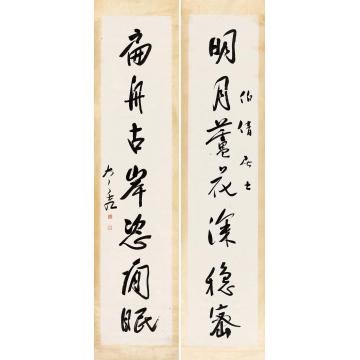 明月蘆花深穩密
伯倩居士
扁舟古岸恣閒眠